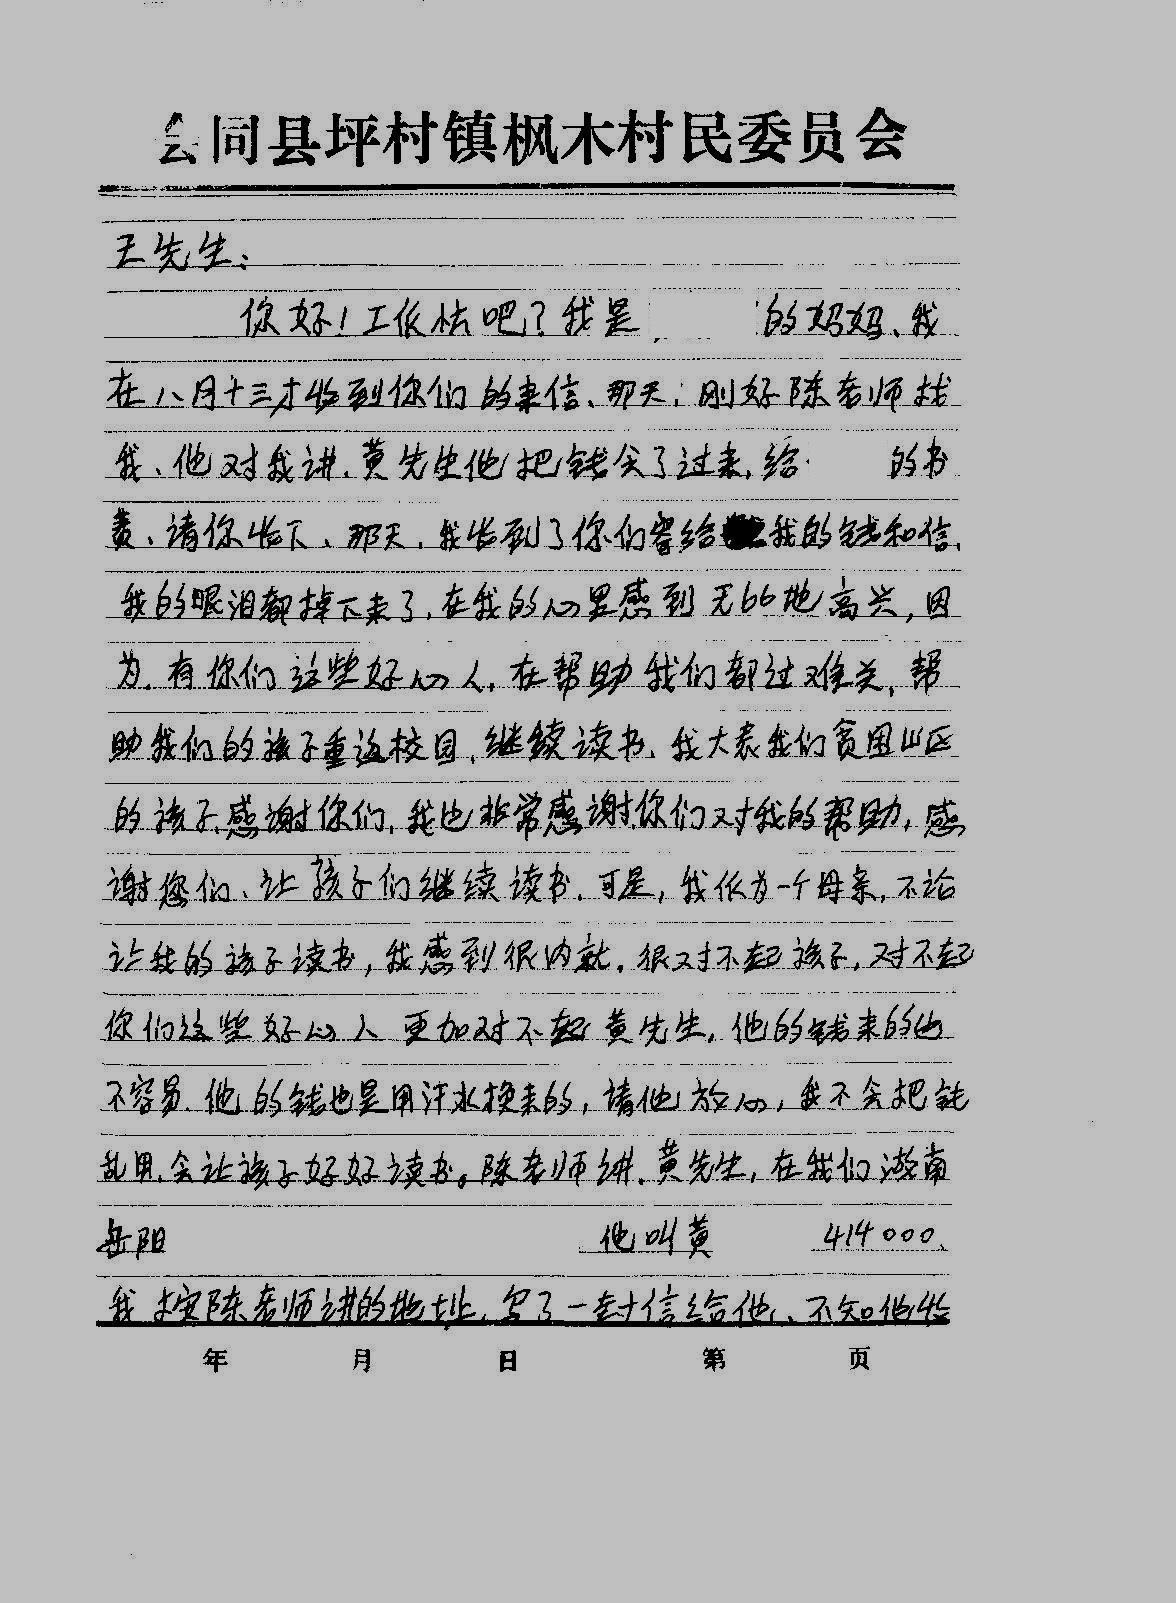 会同县坪村镇枫木村民委员会
王先生:
你好!工作忙吧?我是 的妈妈、我
在八月十三才收到你们的来信、那天,刚好陈老师找
我、他对我讲.黄先生他把钱寄了过来,给 的书
费、请你收下、那天,我收到了你们寄给 我的钱和信,
我的眼泪都掉下来了,在我的心里感到无比地高兴,因
为.有你们这些好心人,在帮助我们都过难关,帮
助我们的孩子重返校园,继续读书,我大表我们贫困山区
的孩子,感谢你们,我也非常感谢你们对我的帮助,感
谢您们、让孩子们继续读书.可是,我作为一个母亲,不论
让我的孩子读书,我感到很内就.很对不起孩子,对不起
你们这些好心人 更加对不起黄先生,他的钱来的也
不容易.他的钱也是用汗水换来的,请他放心,我不会把钱
乱用,会让孩子好好读书。陈老师讲.黄先生,在我们湖南
岳阳 他叫黄 414000、
我按陈老师讲的地址,写了一封信给他、不知他收
年 月 日 第 页